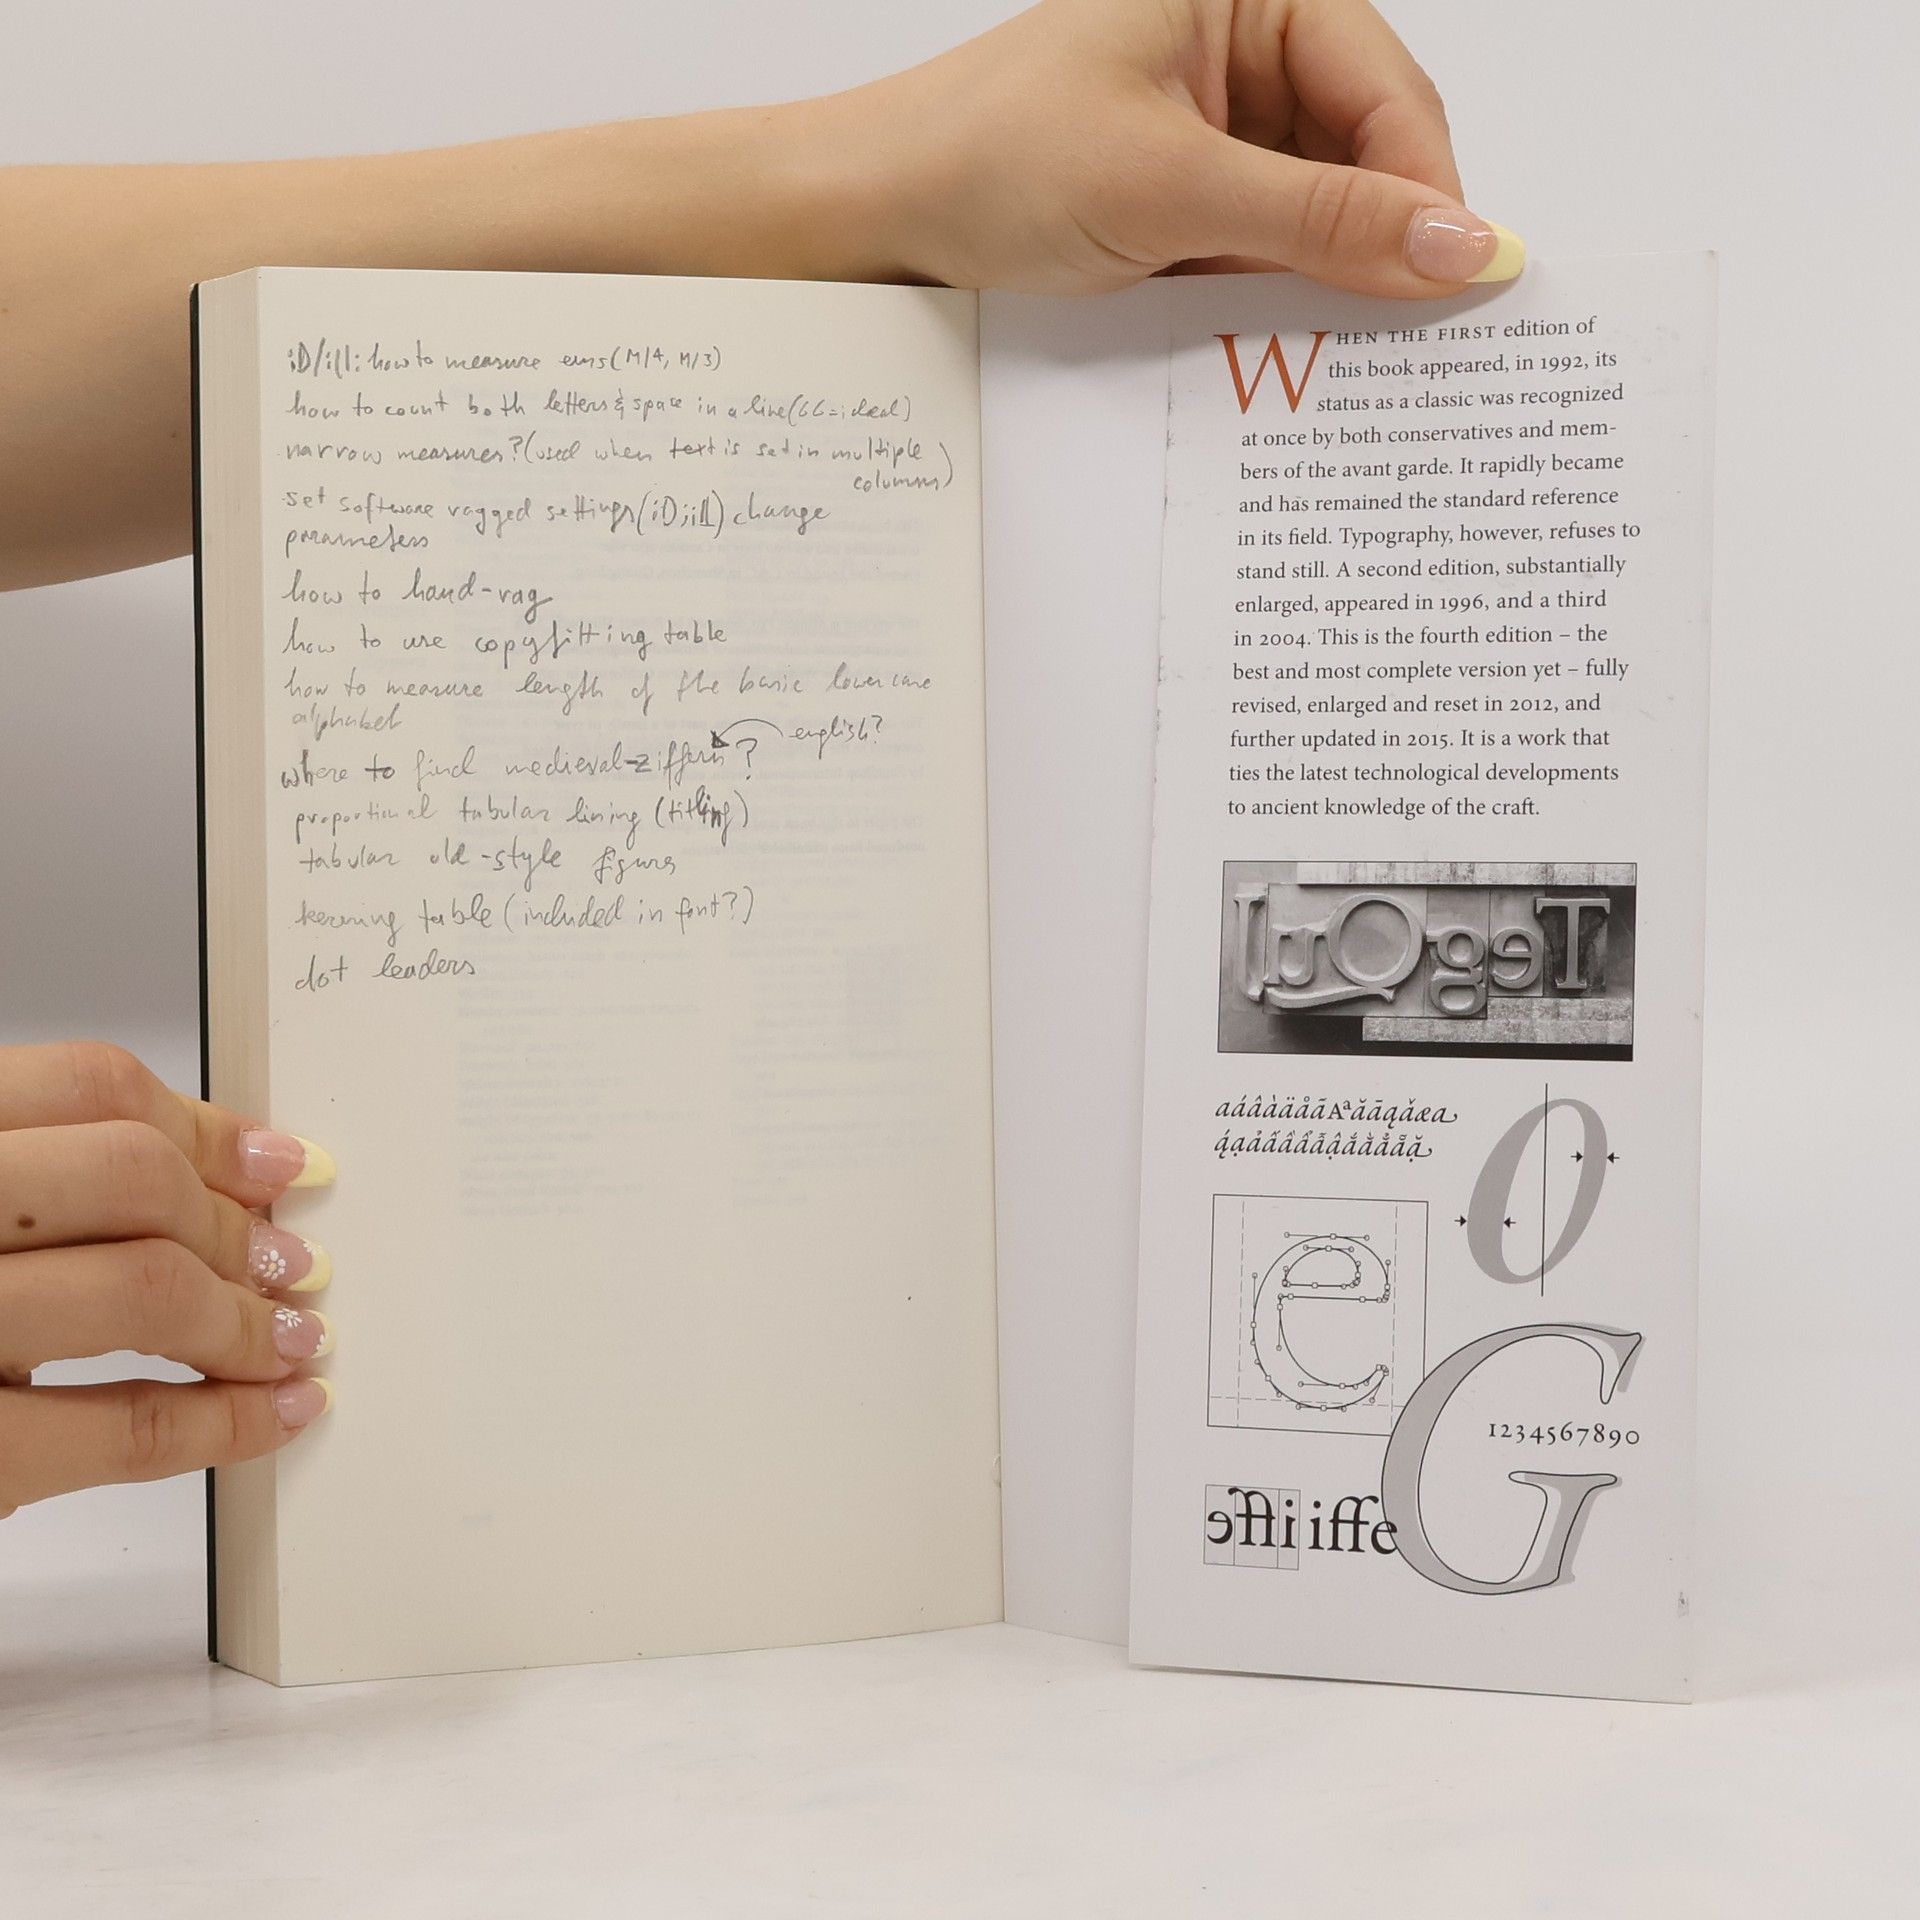 iD/ill: how to measure ems (M/4, M/3)
how to count both letters & space in a line (66=ideal)
narrow measures? (used when text is set in multiple
columns)
set software ragged settings (iD; ill) change
parameters
how to hand-rag
how to use copyfitting table
how to measure length of the basic lowercase
alphabet
english?
where to find medieval-ziffern?
proportional tabular lining (titling)
tabular old-style figures
kerning table (included in font?)
dot leaders
WHEN THE FIRST edition of
this book appeared, in 1992, its
status as a classic was recognized
at once by both conservatives and mem-
bers of the avant garde. It rapidly became
and has remained the standard reference
in its field. Typography, however, refuses to
stand still. A second edition, substantially
enlarged, appeared in 1996, and a third
in 2004. This is the fourth edition – the
best and most complete version yet – fully
revised, enlarged and reset in 2012, and
further updated in 2015. It is a work that
ties the latest technological developments
to ancient knowledge of the craft.
TegQuJ
aáâàäåãAªăāąǎæa
ą́ạảấầẩẫậắằẳẵặ
0
e
G
1234567890
effi iffe